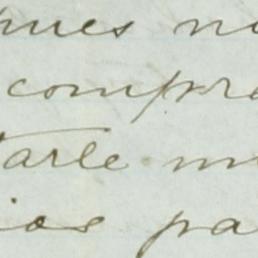 pues no
compre
tarle m
ios pa